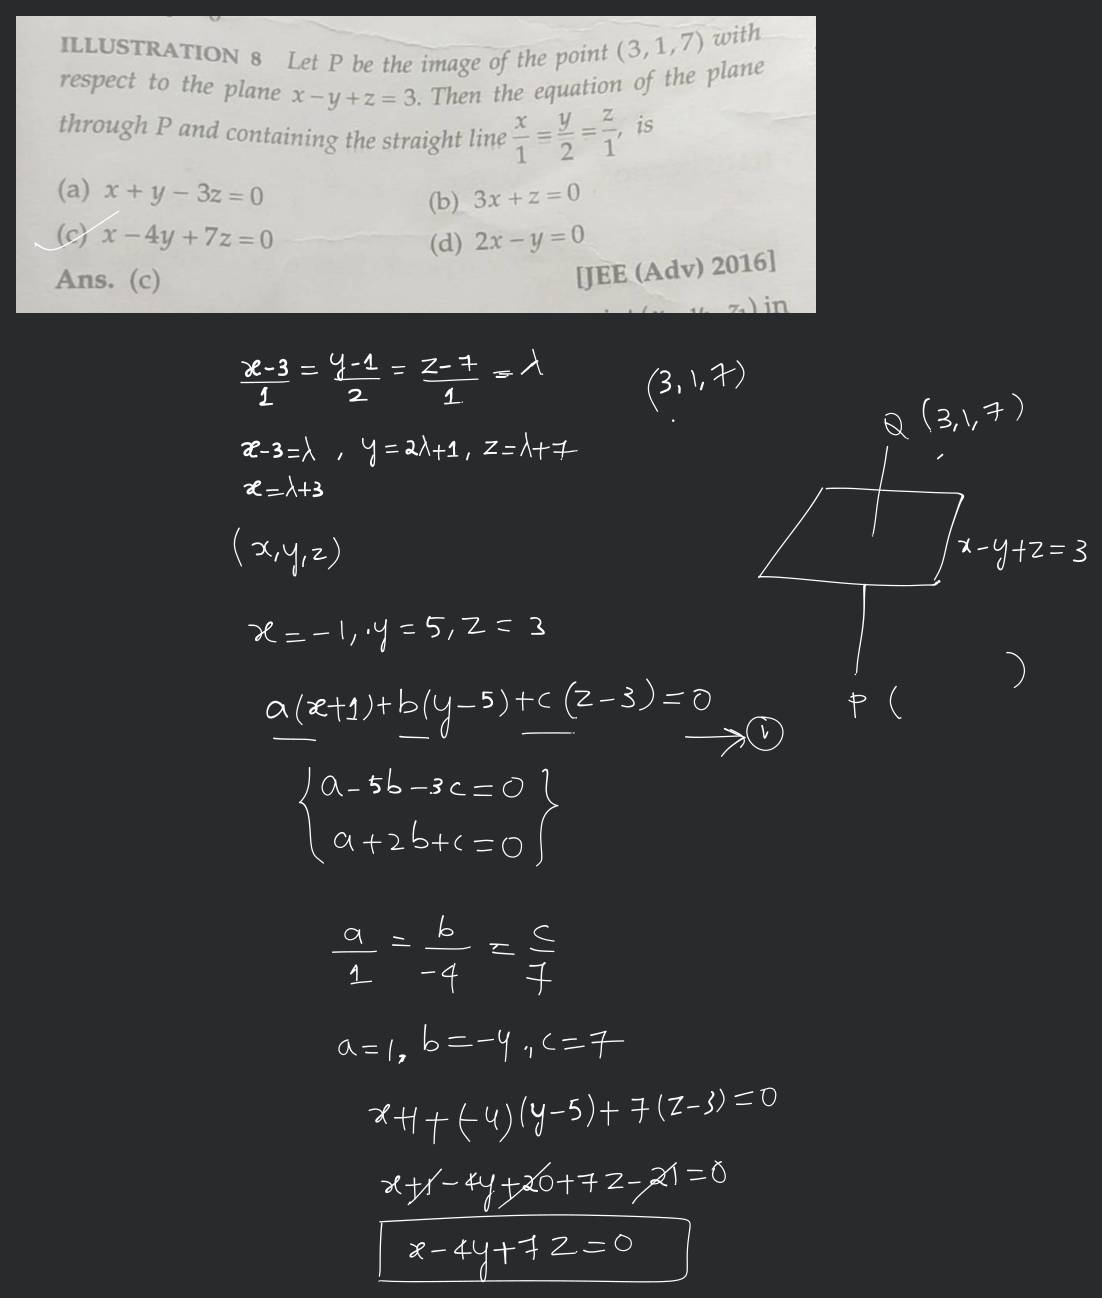 ILLUSTRATION 8 Let P be the image of the point (3, 1, 7) with
respect to the plane x – y + z = 3. Then the equation of the plane
through P and containing the straight line x/1 = y/2 = z/1, is
(a) x + y – 3z = 0 (b) 3x + z = 0
(c) x – 4y + 7z = 0 (d) 2x – y = 0
Ans. (c) [JEE (Adv) 2016]
(x-3)/1 = (y-1)/2 = (z-7)/1 = λ
(3,1,7)
Q (3,1,7)
x-3=λ , y=2λ+1, z=λ+7
x=λ+3
(x,y,z)
x-y+z=3
x=-1, y=5, z=3
a(x+1)+b(y-5)+c(z-3)=0
P ( )
{a-5b-3c=0
a+2b+c=0}
a/1 = b/-4 = c/7
a=1, b=-4, c=7
x+1+(-4)(y-5)+7(z-3)=0
x+1-4y+20+7z-21=0
x-4y+7z=0